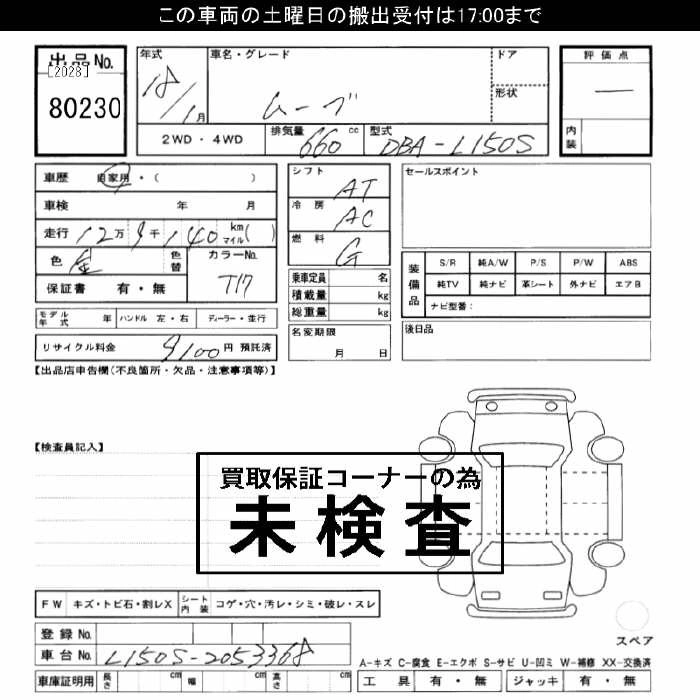 この車両の土曜日の搬出受付は17:00まで
出品No.
[2028]
80230
年式
18/1月
車名・グレード
ムーブ
ドア
形状
評価点
―
内装
2WD・4WD
排気量
660 cc
型式
DBA-L150S
車歴 自家用・( )
車検 年 月
走行 12万9千140 km マイル( )
色 金 色替
カラーNo.
T17
保証書 有・無
シフト
AT
冷房
AC
燃料
G
乗車定員 名
積載量 kg
総重量 kg
セールスポイント
装備品
S/R 純A/W P/S P/W ABS
純TV 純ナビ 革シート 外ナビ エアB
ナビ型番：
モデル年式 年 ハンドル 左・右 ディーラー・並行
名変期限
月 日
後日品
リサイクル料金 9100円 預託済
【出品店申告欄(不良箇所・欠品・注意事項等)】
【検査員記入】
買取保証コーナーの為
未検査
FW キズ・トビ石・割レX シート内装 コゲ・穴・汚レ・シミ・破レ・スレ
スペア
登録No.
車台No. L150S-2053368
A-キズ C-腐食 E-エクボ S-サビ U-凹ミ W-補修 XX-交換済
車庫証明用 長さ cm 幅 cm 高さ cm
工具 有・無 ジャッキ 有・無